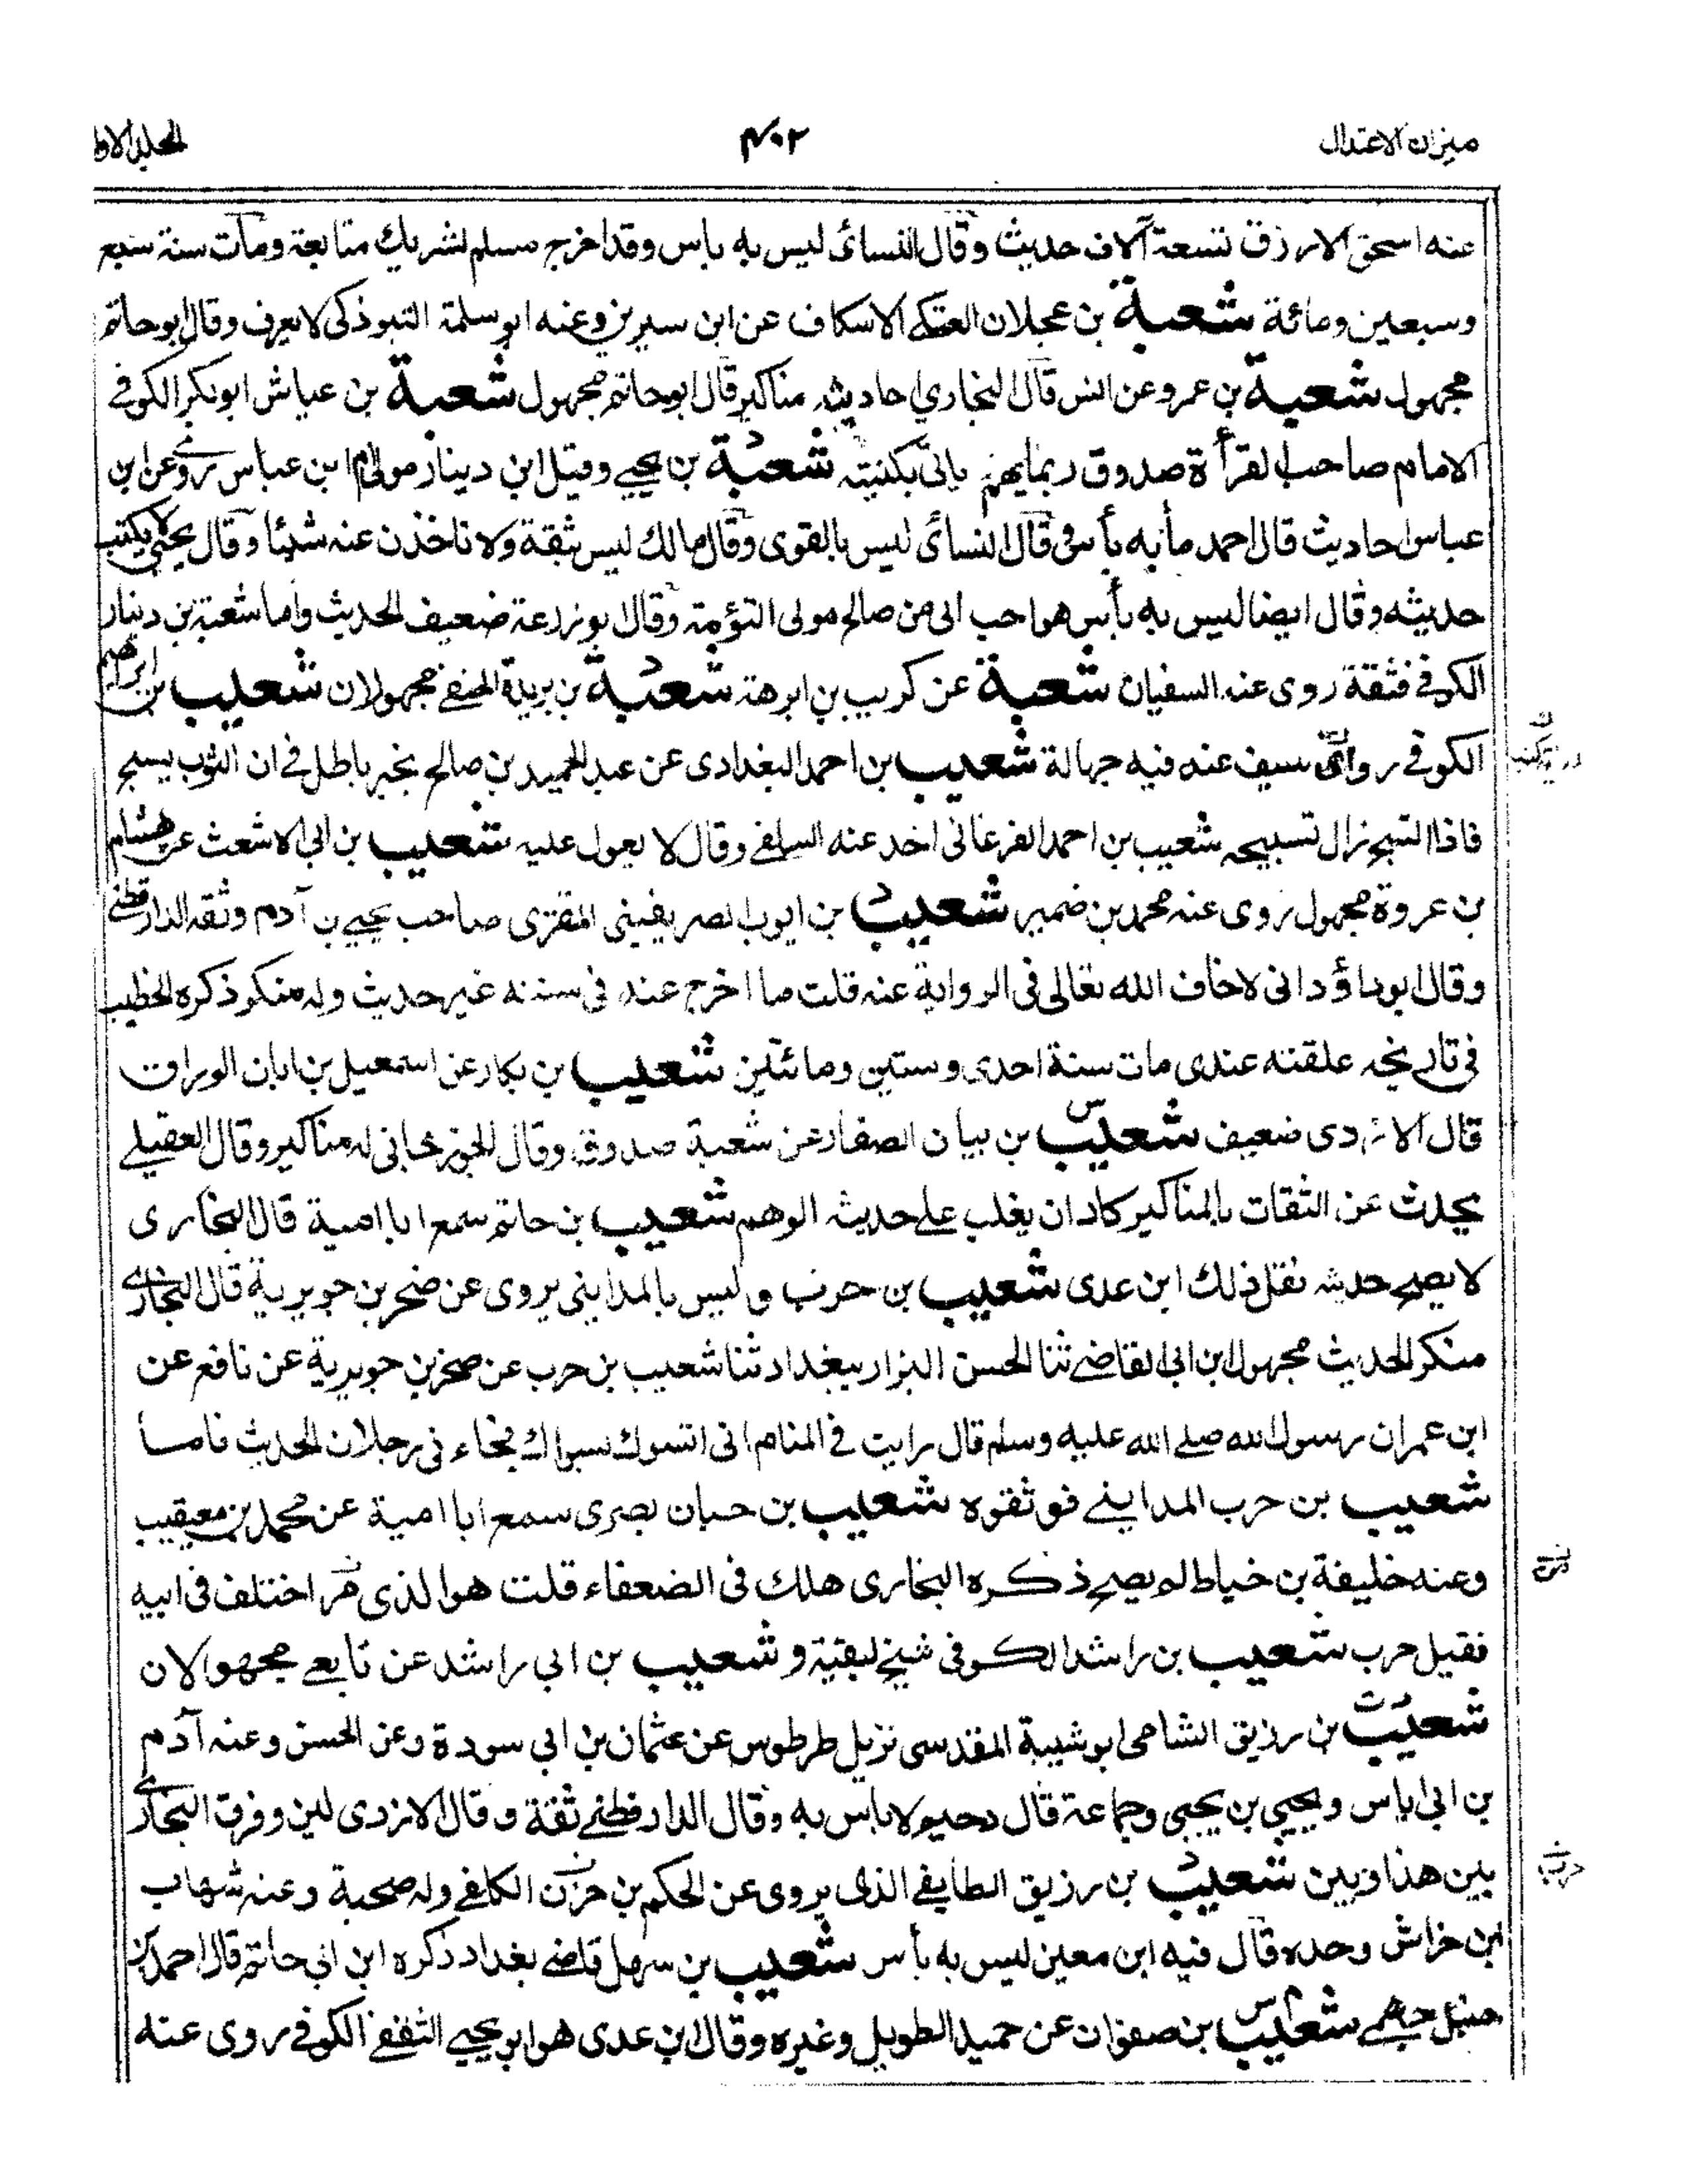 ميزان الاعتدال
٤٠٢
المجلد الاول
عنه اسحق الازرق تسعة آلاف حديث وقال النسائى ليس به باس وقد اخرج مسلم لشريك متابعة ومات سنة سبع
وسبعين ومائة شعبة بن عجلان العتكى الاسكاف عن ابن سيرين وعنه ابو سلمة التبوذكى لا يعرف وقال ابو حاتم
مجهول شعبة بن عمرو عن انس قال البخاري احاديثه مناكير قال ابو حاتم مجهول شعبة بن عياش ابو بكر الكوفے
الامام صاحب القرأة صدوق ربما يهم ياتى بكنيته شعبة بن يحيے وقيل ابن دينار مولى ابن عباس وعن ابن
عباس احاديث قال احمد ما به بأس قال النسائى ليس بالقوى وقال مالك ليس بثقة ولا تاخذن عنه شيئا وقال يحيى لا يكتب
حديثه وقال ايضا ليس به بأس هو احب الى من صالح مولى التؤمة وقال بو زرعة ضعيف الحديث واما شعبة بن دينار
الكوفے فثقة روى عنه السفيان شعبة عن كريب بن ابرهة شعبة بن بريدة الحنفے مجهولان شعيب بن ابراهيم
الكوفے سيف عنه فيه جهالة شعيب بن احمد البغدادى عن عبد الحميد بن صالح بخبر باطل فے ان الثوب يسبح
فاذا اتسخ زال تسبيحه شعيب بن احمد الفرغانى اخد عنه السلفے وقال لا يعول عليه شعيب بن ابى الاشعث عن هشام
بن عروة مجهول روى عنه محمد بن ضمير شعيب بن ايوب الصريفينى المقرى صاحب يحيے بن آدم وثقه الدارقطنے
وقال ابو داؤد انى لاخاف الله تعالى فى الرواية عنه قلت ما اخرج عنه فى سننه غير حديث وله منكر ذكره الخطيب
فى تاريخه علقته عندى مات سنة احدى وستين ومائتين شعيب بن بكار عن اسمعيل بن ابان الوراق
قال الازدى ضعيف شعيب بن بيان الصفار عن شعبة صدوق وقال الجوزجانى له مناكير وقال العقيلے
يحدث عن الثقات بالمناكير كاد ان يغلب علے حديثه الوهم شعيب بن حاتم سمع ابا امية قال البخارى
لا يصح حديثه نقل ذلك ابن عدى شعيب بن حرب وليس بالمداينى يروى عن صخر بن جويرية قال البخارے
منكر الحديث مجهول ابن ابى القاضے ثنا الحسن البزار ببغداد ثنا شعيب بن حرب عن صخر بن جويرية عن نافع عن
ابن عمران رسول الله صلے الله عليه وسلم قال رايت فے المنام انى اتسوك بسواك فجاء نى رجلان الحديث فاما
شعيب بن حرب المداينے فوثقوه شعيب بن حبان بصرى سمع ابا امية عن محمد بن معيقيب
وعنه خليفة بن خياط لم يصح ذكره البخارى هلك فى الضعفاء قلت هو الذى مر اختلف فى ابيه
فقيل حرب شعيب بن راشد الكوفى شيخ لبقية و شعيب بن ابى راشد عن تابعے مجهولان
شعيب بن رزيق الشامى ابو شيبة المقدسى نزيل طرطوس عن عثمان بن ابى سودة وعن الحسن وعنه آدم
بن ابى اياس ويحيى بن يحيى وجماعة قال دحيم لا باس به وقال الدارقطنے ثقة وقال الازدى لين وفرق البخارے
بين هذا وبين شعيب بن رزيق الطايفے الذى يروى عن الحكم بن حزن الكلفے وله صحبة وعنه شهاب
ابن خراش وحده قال فيه ابن معين ليس به بأس شعيب بن سهل قاضے بغداد ذكره ابن ابى حاتم قال احمد بن
حنبل جهمے شعيب بن صفوان عن حميد الطويل وغيره وقال ابن عدى هو ابو يحيے الثقفے الكوفے روى عنه